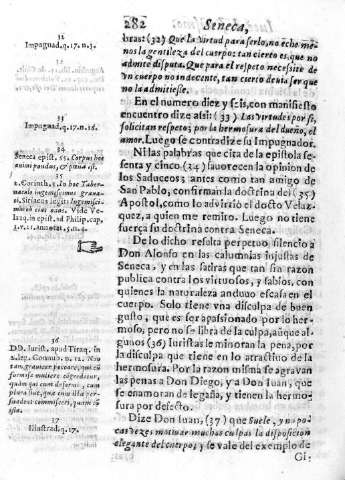 282 Seneca,
32
Impugnad. q. 17. n. 3.
bras: (32) Que la Virtud para serlo, no eche me-
nos la gentileza del cuerpo: tan cierto es, que no
admite disputa. Que para el respeto necessite de
Vn cuerpo no indecente, tan cierto deuia ser que
no la admitiesse.
En el numero diez y seis, con manifiesto
encuentro dize assi: (33) Las Virtudes por si,
solicitan respeto; por la hermosura del dueño, el
amor. Luego se contradize su Impugnador.
33
Impugnad. q. 17. n. 16.
Ni las palabras que cita de la epistola se-
senta y cinco (34) fauorecen la opinion de
los Saduceos: antes como tan amigo de
San Pablo, confirman la doctrina del (35)
Apostol, como lo advirtió el docto Velaz-
quez, a quien me remito. Luego no tiene
fuerça su doctrina contra Seneca.
34
Seneca epist. 65. Corpus hoc
animi pondus, &
35
2. Corinth. 5. In hoc Taber-
naculo ingemiscimus graua-
ti, Siriacus legit: Ingemisci-
mus Vide Ve-
lazq. in epist. ad Philip. cap.
1. v. annotat. 5. n. 4.
De lo dicho resulta perpetuo, silencio a
Don Alonso en las calumnias injustas de
Seneca, y en las satiras que tan sin razon
publica contra los virtuosos, y sabios, con
quienes la naturaleza anduuo escasa en el
cuerpo. Solo tiene vna disculpa de buen
gusto, que es ser apasionado por lo her-
moso, pero no se libra de la culpa, aũque al-
gunos (36) Iuristas le minoran la pena, por
la disculpa que tiene en lo atractiuo de la
hermosura. Por la razon misma se agravan
las penas a Don Diego, y a Don Iuan, que
se enamoran de legañas, y tienen la hermo-
sura por defecto.
36
DD. Iurist. apud Tiraq. in
2. leg. Connub. n. 12. Non
tam grauiter peccare, qui cũ
formosa muliere cognoscitur,
quàm qui cum deformi, cum
plura sint, quæ eum illa per-
suadent commisceri, quàm cũ
ista.
Dize Don Iuan, (37) que Suele, y no po-
cas vezes, motiuar muchas culpas la disposicion
elegante del cuerpo; y se vale del exemplo de
37
Illustrad. q. 17.
Gi-